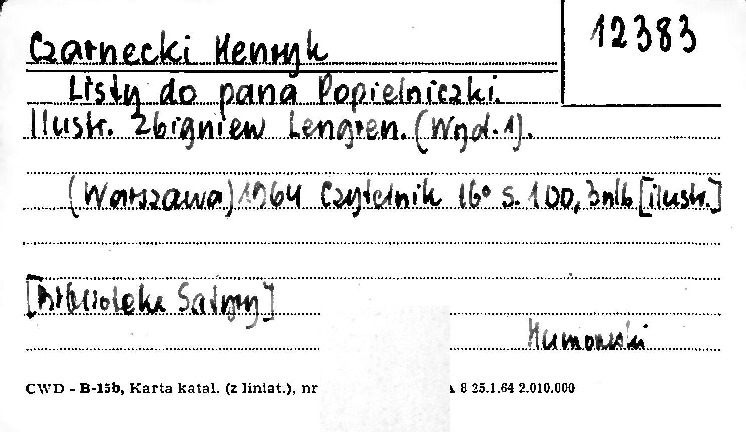 12383
Czarnecki Henryk
Listy do pana Popielniczki.
Ilustr. Zbigniew Lengren. (Wyd. 1).
(Warszawa) 1964 Czytelnik 16° s. 100, 3nlb [ilustr.]
[Biblioteka Satyry]
CWD - B-15b, Karta katal. (z liniat.), nr
A 8 25.1.64 2.010.000